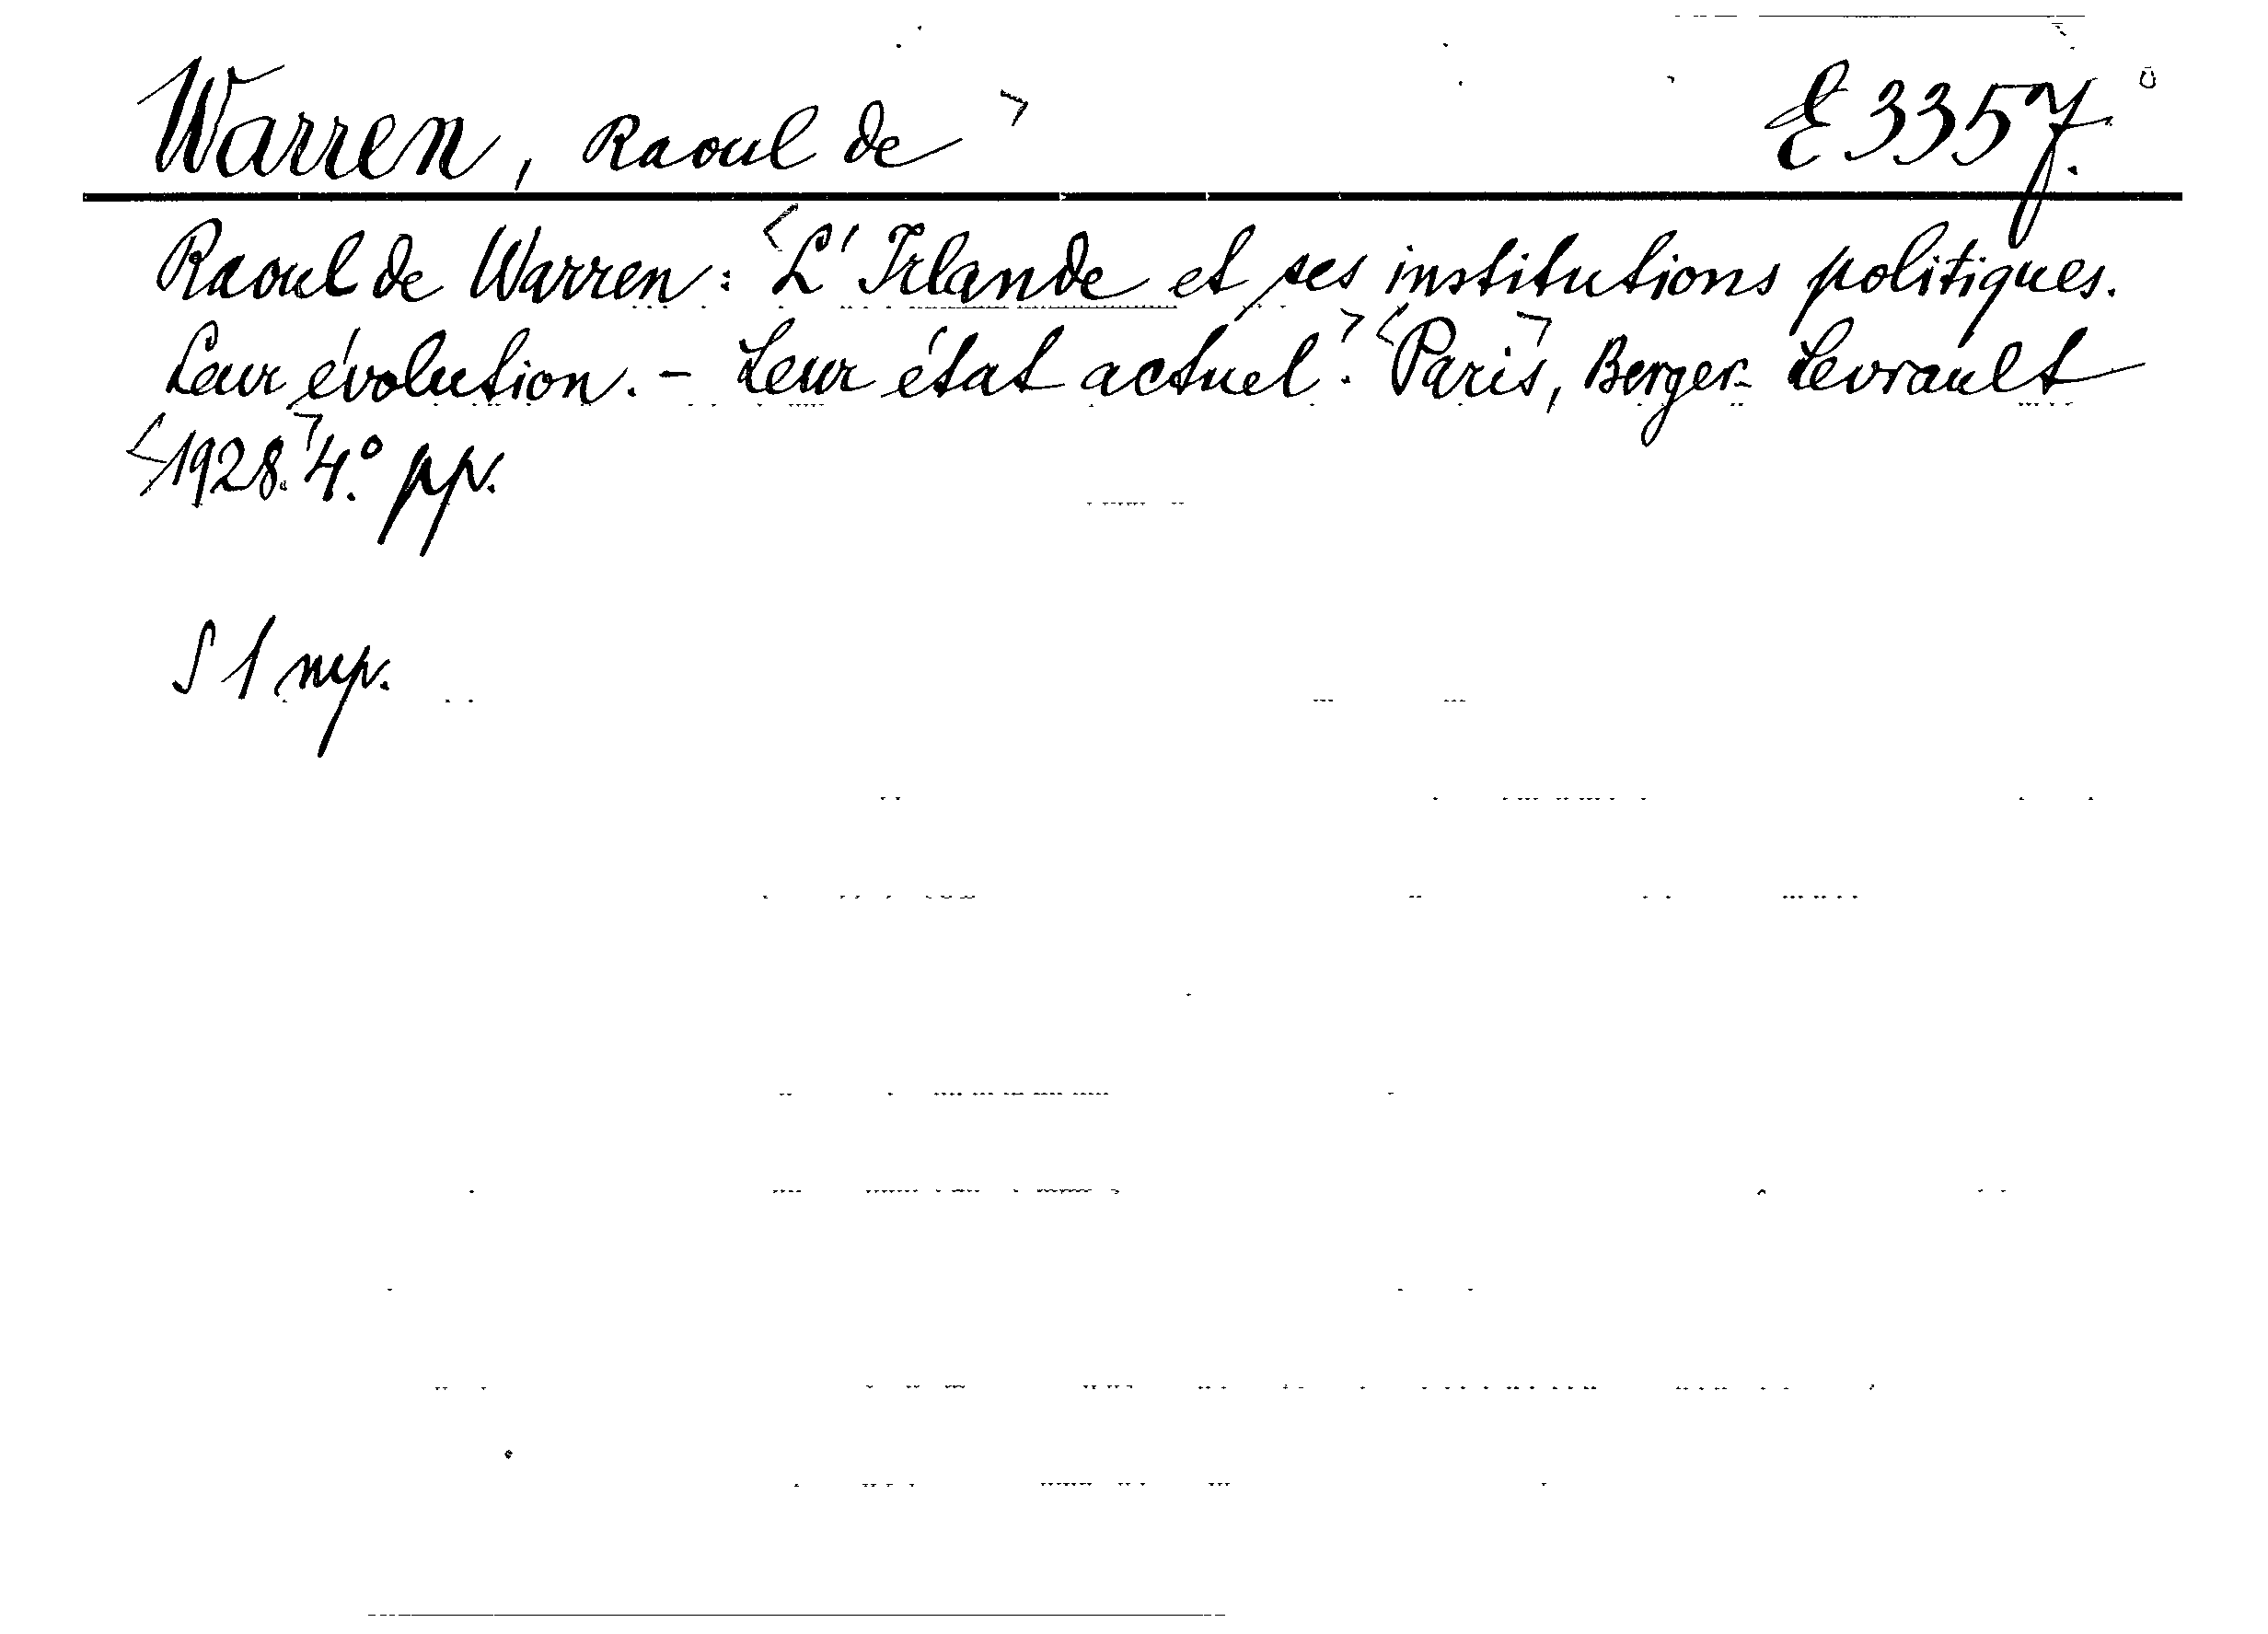 Warren, Raoul de ⌝ E 3357.
Raoul de Warren: <L'Irlande et ses institutions politiques.
Leur évolution. - Leur état actuel⌝. <Paris⌝, Berger-Levrault
<1928.⌝ 4.° pp.
S 1 np.